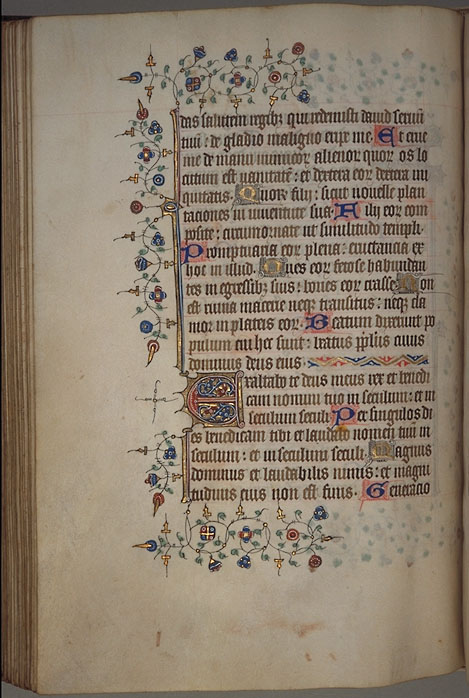 das salutem regibz qui redemisti dauid seruū
tuū : de gladio maligno eripe me Et erue
me de manu inimicor alienor quor os lo
cutum est uanitatē : et dextera eor dextera ini
quitatis Quor filij : sicut nouelle plan
taciones in iuuentute sua . Filij eor com
posite : circumornate ut similitudo templi .
Promptuaria eor plena : eructancia ex
hoc in illud . Oues eor fetose habundan
tes in egressibz suis : boues eor crasse Non
est ruina macerie neqz transitus : neqz cla
mor in plateis eor . Beatum dixerunt po
pulum cui hec sunt : beatus ppl's cuius
dominus deus eius .
Exaltabo te deus meus rex et benedi
cam nomini tuo in seculum : et in
seculum seculi Per singulos di
es benedicam tibi et laudabo nomen tuū in
seculum : et in seculum seculi . Magnus
dominus et laudabilis nimis : et magni
tudinis eius non est finis . Generacio